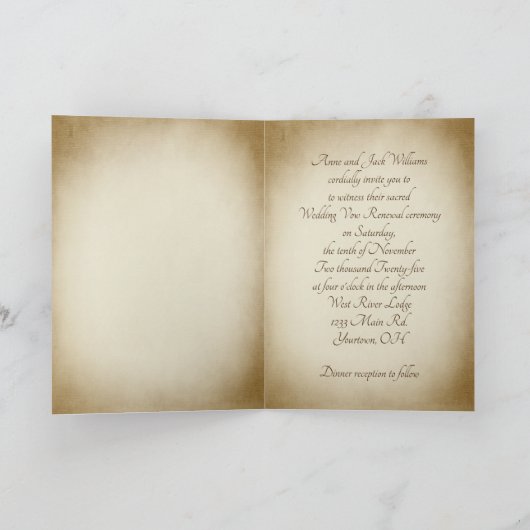 Anne and Jack Williams
cordially invite you to
to witness their sacred
Wedding Vow Renewal ceremony
on Saturday,
the tenth of November
Two thousand Twenty-five
at four o'clock in the afternoon
West River Lodge
1233 Main Rd.
Yourtown, OH
Dinner reception to follow